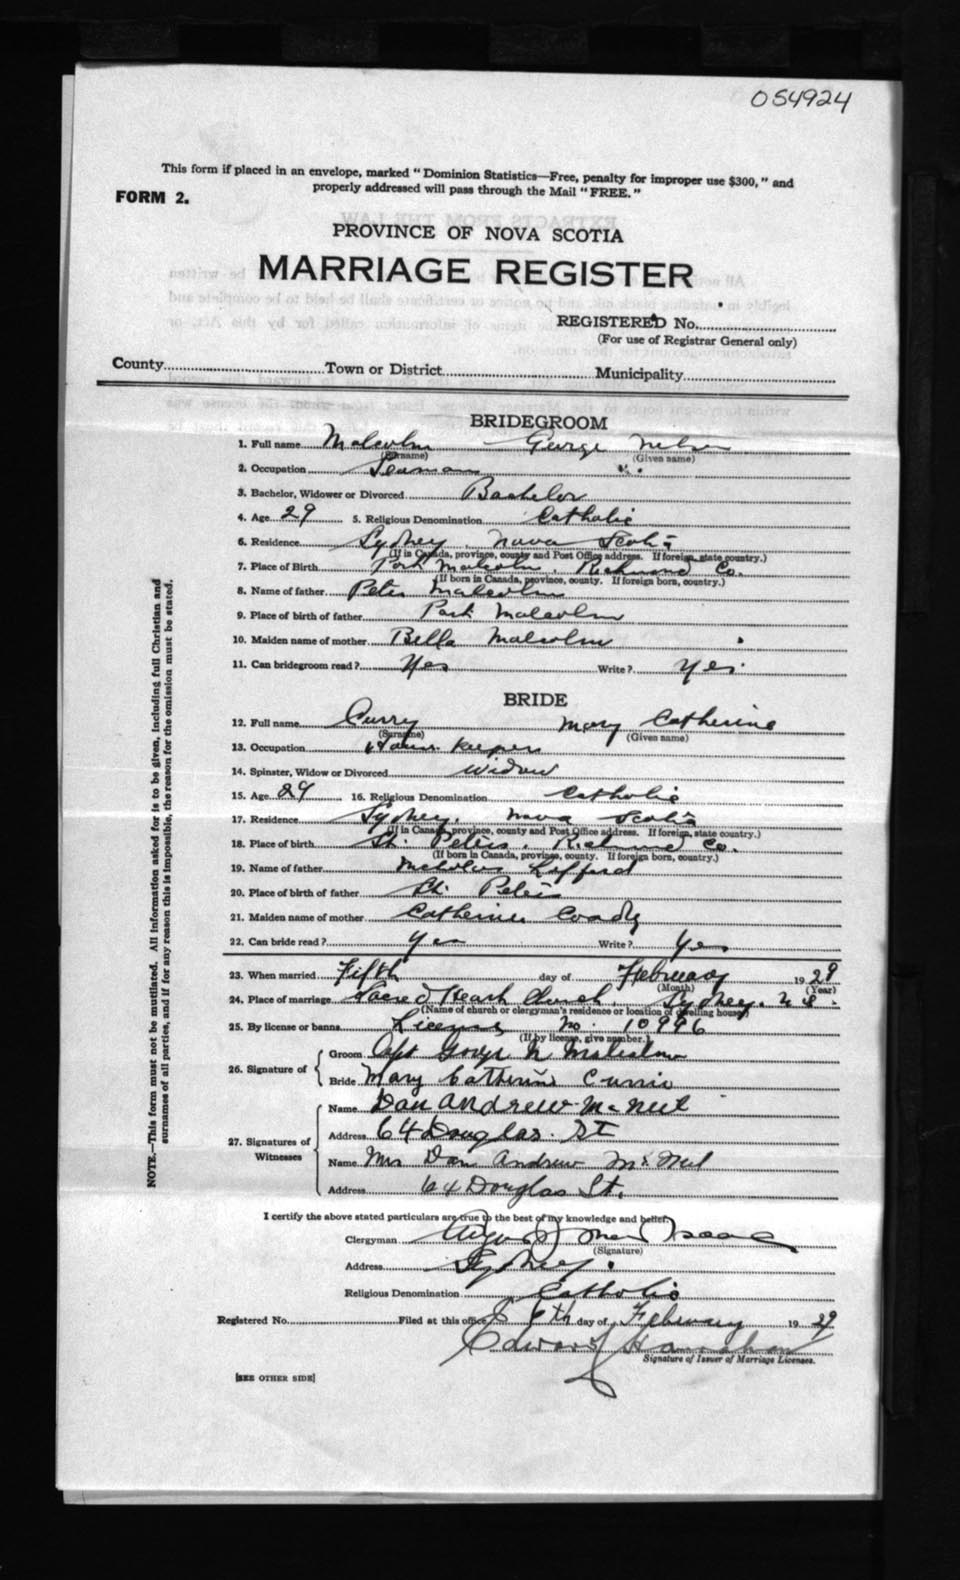 054924
This form if placed in an envelope, marked "Dominion Statistics—Free, penalty for improper use $300," and
properly addressed will pass through the Mail "FREE."
FORM 2.
PROVINCE OF NOVA SCOTIA
MARRIAGE REGISTER
REGISTERED No.
(For use of Registrar General only)
County Town or District Municipality
BRIDEGROOM
1. Full name Malcolm George Nelson
(Surname) (Given name)
2. Occupation Seaman
3. Bachelor, Widower or Divorced Bachelor
4. Age 29 5. Religious Denomination Catholic
6. Residence Sydney, Nova Scotia
(If in Canada, province, county and Post Office address. If foreign, state country.)
7. Place of Birth Port Malcolm, Richmond Co.
(If born in Canada, province, county. If foreign born, country.)
8. Name of father Peter Malcolm
9. Place of birth of father Port Malcolm
10. Maiden name of mother Bella Malcolm
11. Can bridegroom read? Yes Write? Yes
BRIDE
12. Full name Curry Mary Catherine
(Surname) (Given name)
13. Occupation House Keeper
14. Spinster, Widow or Divorced Widow
15. Age 29 16. Religious Denomination Catholic
17. Residence Sydney, Nova Scotia
(If in Canada, province, county and Post Office address. If foreign, state country.)
18. Place of birth St. Peters, Richmond Co.
(If born in Canada, province, county. If foreign born, country.)
19. Name of father
20. Place of birth of father St. Peters
21. Maiden name of mother Catherine Coady
22. Can bride read? Yes Write? Yes
23. When married Fifth day of February 1929
(Month) (Year)
24. Place of marriage Sacred Heart Church, Sydney, N.S.
(Name of church or clergyman's residence or location of dwelling house)
25. By license or banns License No. 10996
(If by license, give number.)
26. Signature of
Groom Capt George N Malcolm
Bride Mary Catherine Currie
27. Signatures of Witnesses
Name Dan Andrew McNeil
Address 64 Douglas St
Name Mrs Dan Andrew McNeil
Address 64 Douglas St.
I certify the above stated particulars are true to the best of my knowledge and belief.
Clergyman
(Signature)
Address Sydney.
Religious Denomination Catholic
Registered No. Filed at this office 6th day of February 1929
Edward Hanrahan
Signature of Issuer of Marriage Licenses.
[SEE OTHER SIDE]
NOTE.—This form must not be mutilated. All information asked for is to be given, including full Christian and
surnames of all parties, and if for any reason this is impossible, the reason for the omission must be stated.